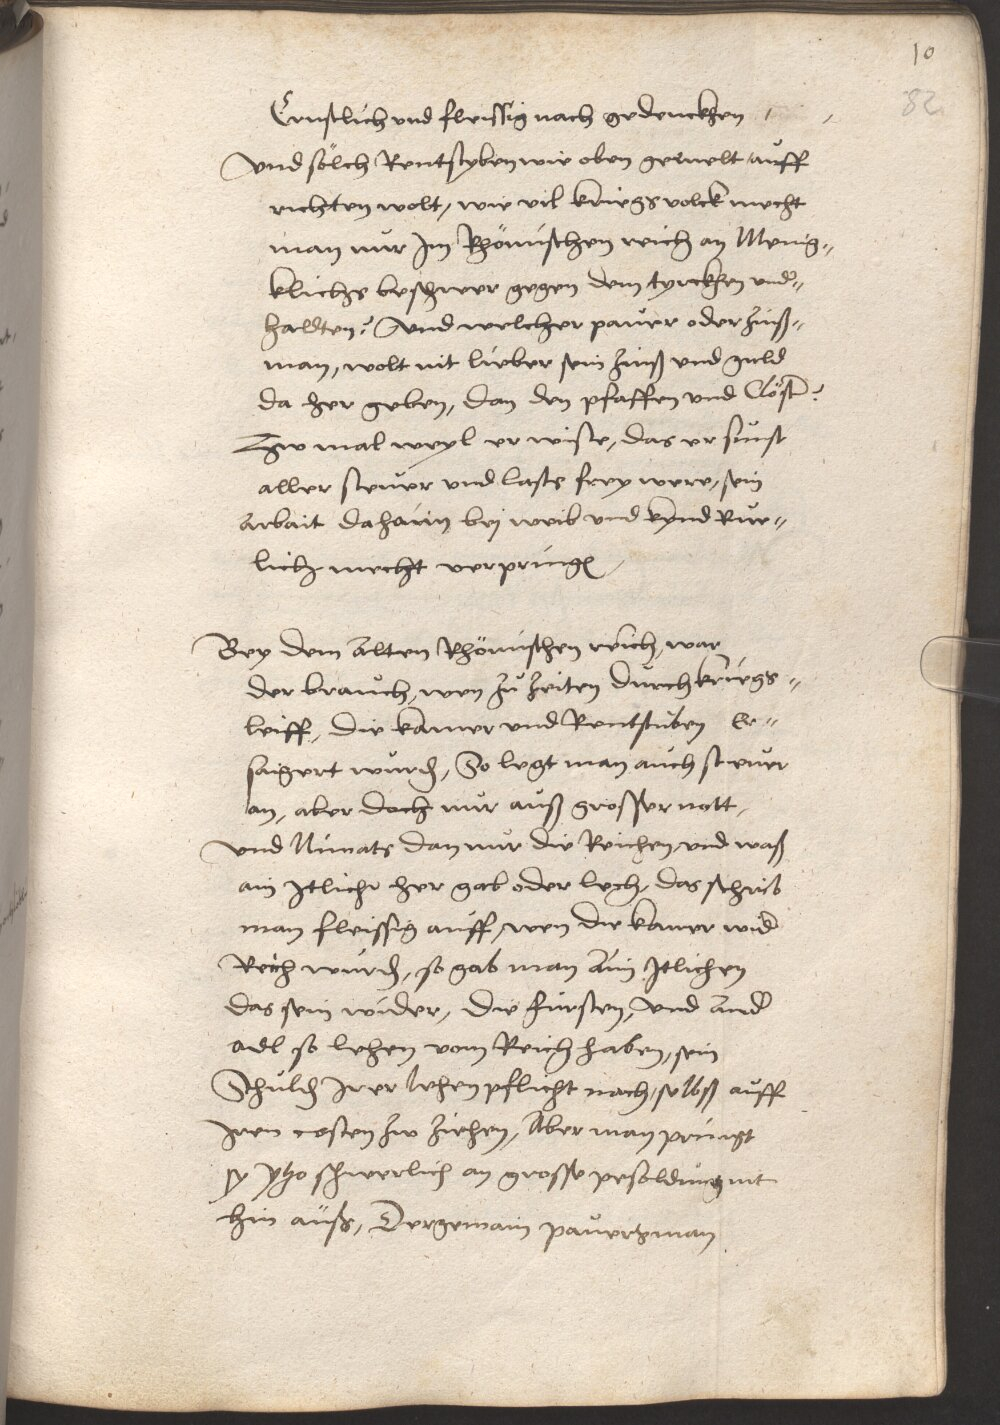 10
82
Ernstlich und fleissig nach gedenckhen
Und sölch Rentstyben wie oben gemelt auff
richten wolt, wie vil kriegsvolck mecht
man nur Im Rhömischen reich an Menig„
klichs beschwer gegen dem tyrckhen und„
haldten? Und welcher paur oder zinß„
man, wolt nit lieber sein zinß und guld
da her geben, dan den pfaffen und Clöst?
Zw mal weyl er wiste, das er sunst
aller steuer und lasts frey were, sein
Arbait dahaim bej weib und kynd Rue„
lich mecht verpringen
Bey dem Alten Rhömischen reich, war
der brauch, wen zu zeiten durch kriegs„
leiff, die kamer und Rentstuben Er„
saigert wurden, So legt man auch steuer
an, aber doch nur auß grosser nott,
Und Nimats dan nur die Reichen, und waß
ain Itlicher her gab oder lech, das schrib
man fleissig auff, wen die kamer wider
Reich wurden, so gab man Aim Itlichen
das sein wider, die fürsten, und Ander
adl so lehen vom Reich haben, sein
Schuldig Irer lehen pflicht nach, selbß auff
Iren costen zw ziehen, Aber man pringt
sy ytzo schwerlich an grosse pesoldung nit
hin auß, Der gemain paurßman